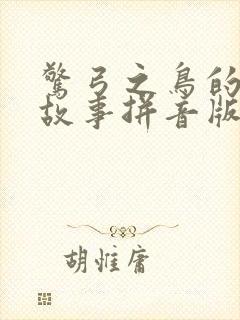 驚弓之鳥的
故事拼音版
胡惟庸